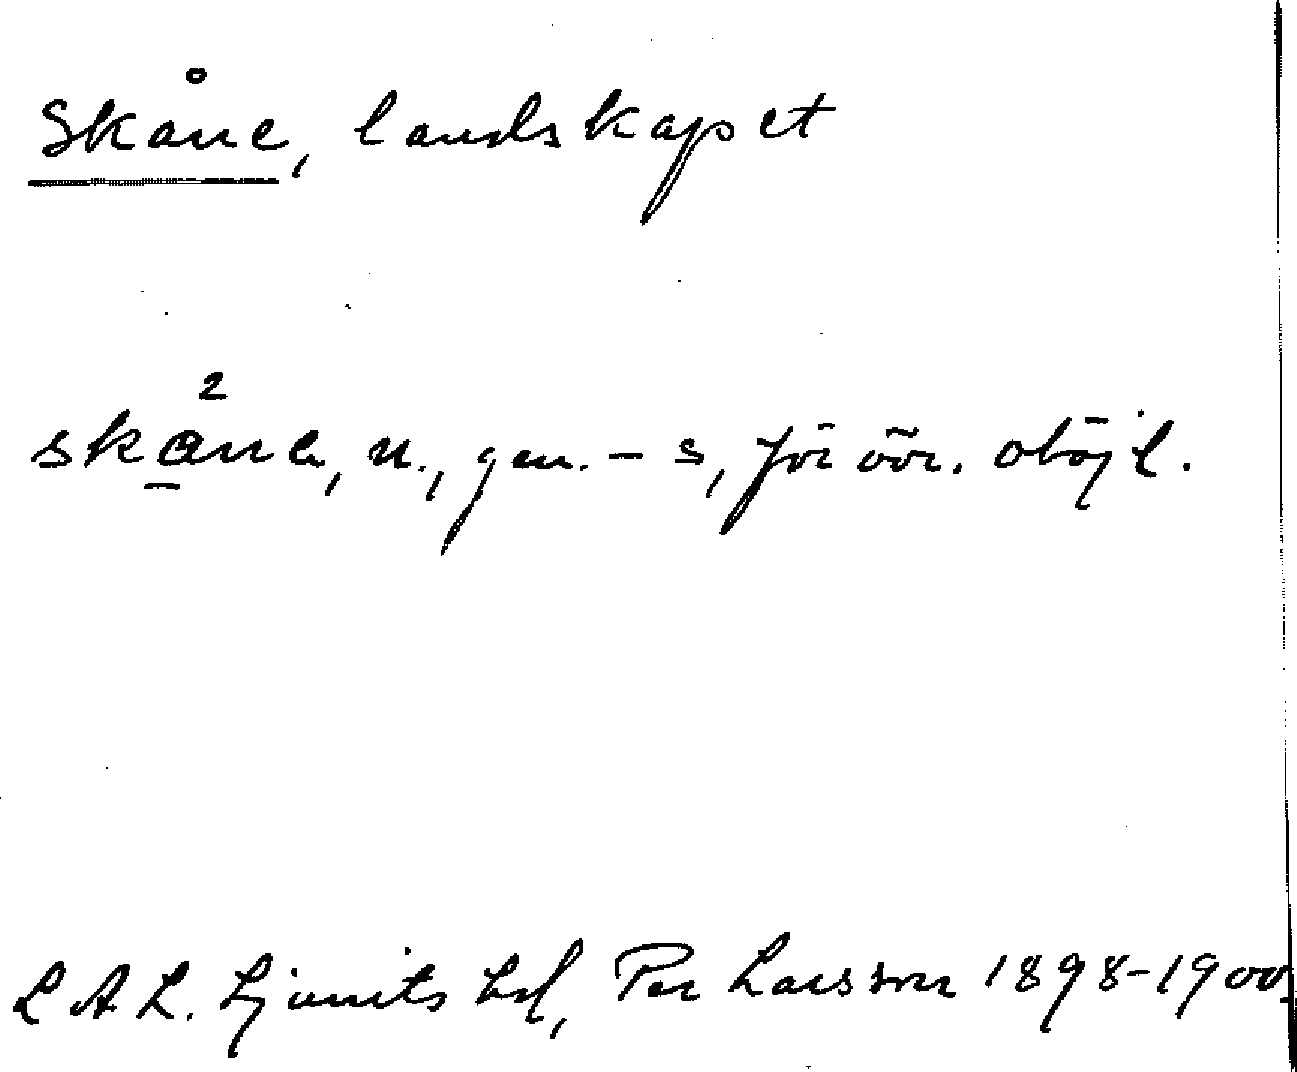 Skåne, landskapet
skånɐ, n., gen. - s, för övr. oböjl.
LAL. Ljunits hd, Per Larsson 1898-1900.